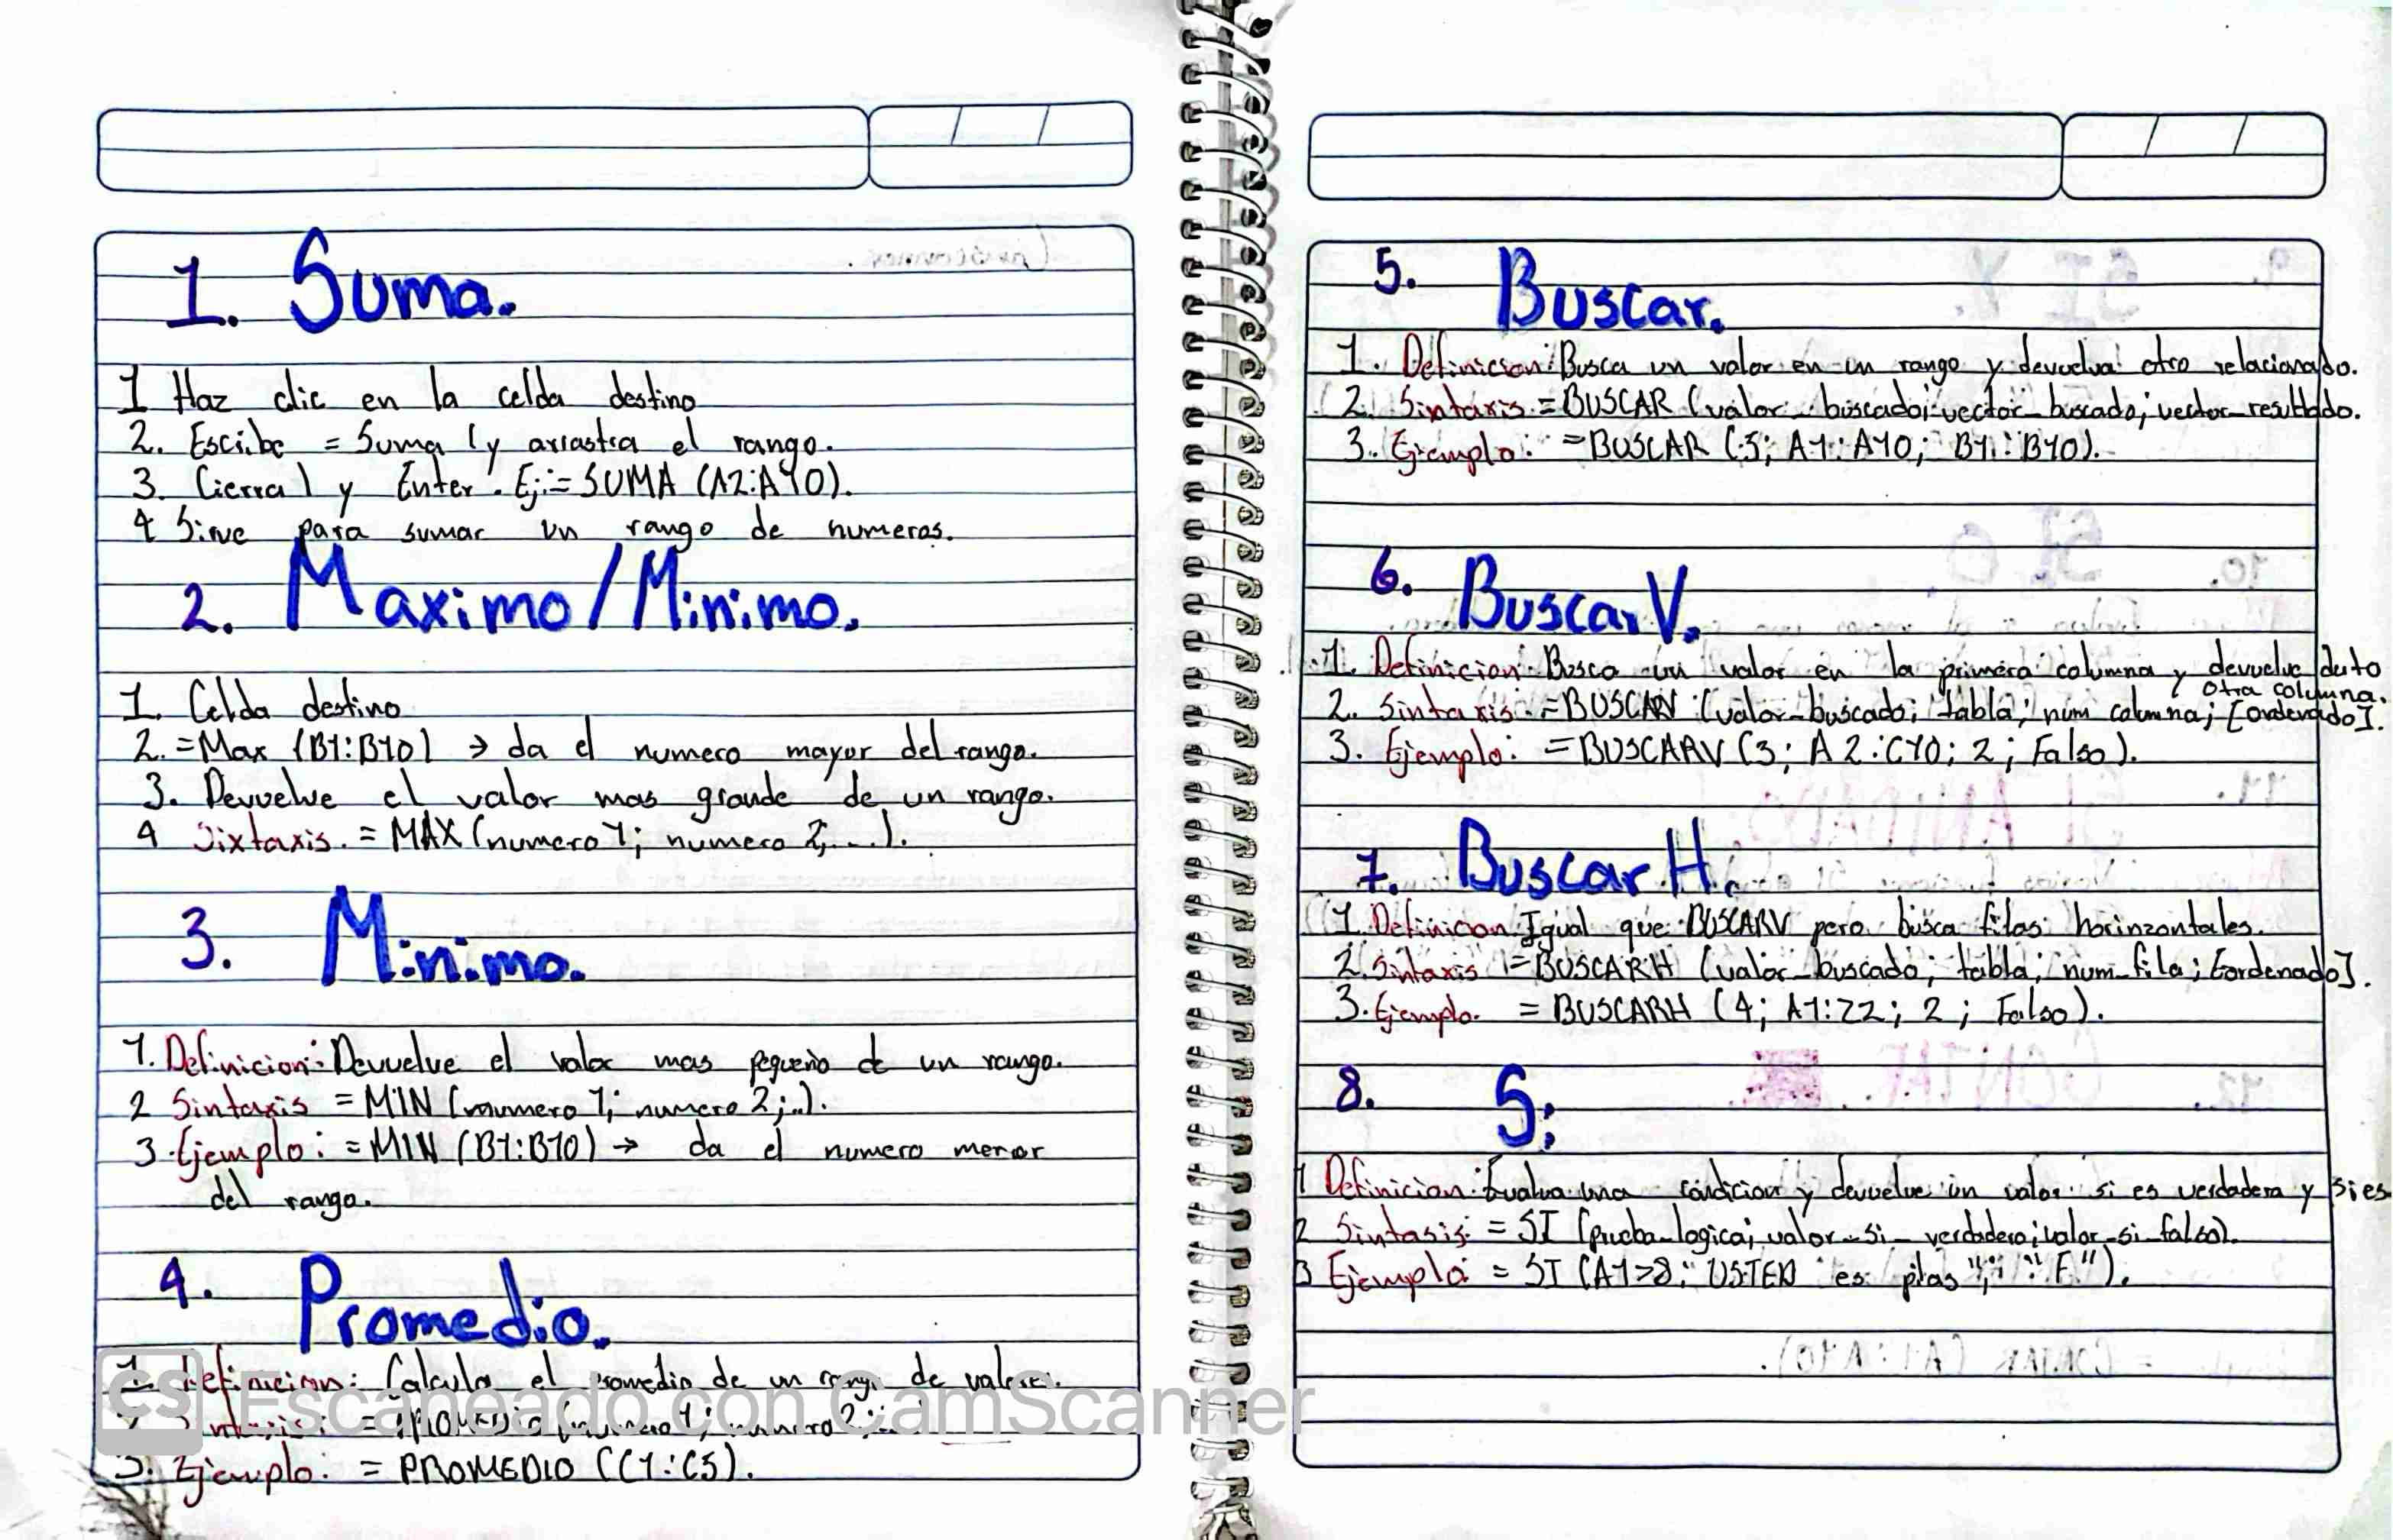 1. Suma.
1 Haz clic en la celda destino
2. Escibe = Suma (y arrastra el rango.
3. Cierra) y Enter. Ej:= SUMA (A2:A10).
4 Sirve para sumar un rango de numeros.
2. Maximo/Minimo.
1. Celda destino
2. =Max (B1:B10) → da el numero mayor del rango.
3. Devuelve el valor mas grande de un rango.
4 Sixtaxis. = MAX (numero 1; numero 2;...).
3. Minimo.
1. Definicion: Devuelve el valor mas pequeño de un rango.
2 Sintaxis = MIN (numero 1; numero 2;..).
3. Ejemplo: = MIN (B1:B10) → da el numero menor
del rango.
4. Promedio.
1. Definicion: Calcula el promedio de un rango de valores.
2 Sintaxis: = PROMEDIO (numero 1; numero 2;..
3. Ejemplo: = PROMEDIO (C1:C5).
CS Escaneado con CamScanner
5. Buscar.
1. Definicion: Busca un valor en un rango y devuelva otro relacionado.
2. Sintaxis = BUSCAR (valor_buscado; vector_buscado; vector_resultado.
3. Ejemplo: = BUSCAR (5; A1:A10; B1:B10).
6. Buscar V.
1. Definicion: Busca un valor en la primera columna y devuelve dato
otra columna.
2. Sintaxis = BUSCARV (valor_buscado; tabla; num columna; [ordenado].
3. Ejemplo: = BUSCARV (3; A2:C10; 2; Falso).
7. Buscar H.
1. Definicion: Igual que BUSCARV pero busca filas horinzontales.
2. Sintaxis = BUSCARH (valor_buscado; tabla; num_fila; [ordenado].
3. Ejemplo. = BUSCARH (4; A1:Z2; 2; Falso).
8. Si
1 Definicion: Evalua una condicion y devuelve un valor si es verdadera y si es
2 Sintasis: = SI (prueba-logica; valor-si-verdadero; valor-si falso).
3 Ejemplo = SI (A1>8; "USTED es plas"; "F").